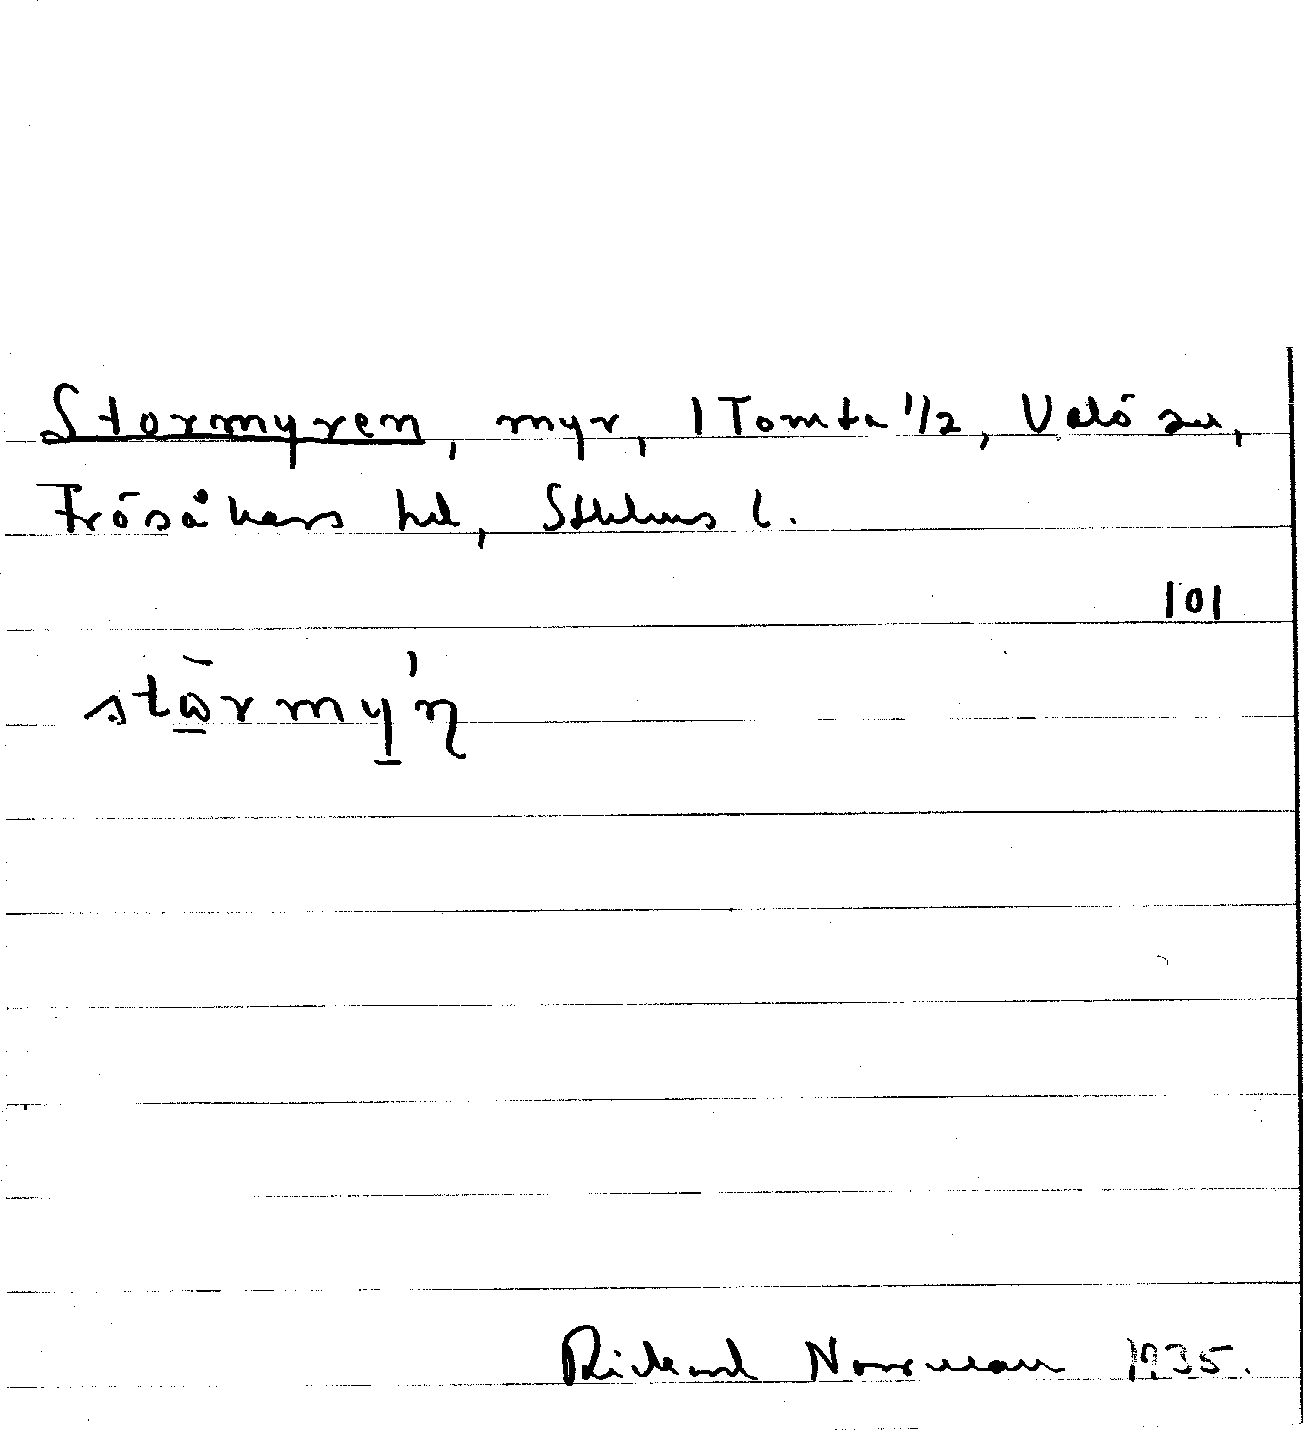 Stormyren, myr, 1 Tomta 1/2, Valö sn,
Frösåkers hd, Sthlms l.
101
stɷ̀rmy̱'n
Rickard Norrman 1935.